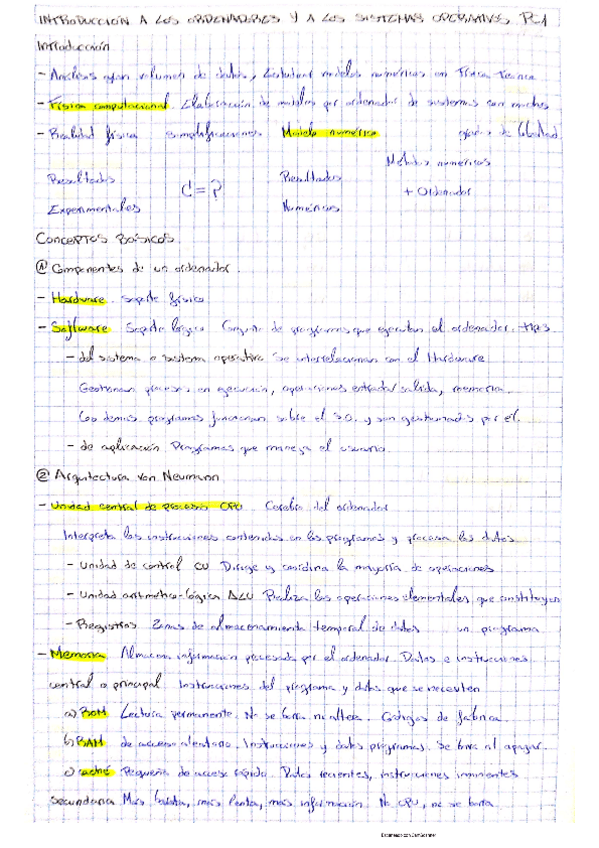 INTRODUCCIÓN A LOS ORDENADORES Y A LOS SISTEMAS OPERATIVOS
Introducción
- Análisis gran volumen de datos, Establecer modelos numéricos en Física Técnica
- Física computacional. Elaboración de modelos por ordenador de sistemas con muchos
- Realidad física simplificaciones Modelo numérico grados de libertad
Métodos numéricos
Resultados Resultados
¿=? + Ordenador
Experimentales Numéricos
CONCEPTOS BÁSICOS
① Componentes de un ordenador.
- Hardware. Soporte físico
- Software Soporte lógico Conjunto de programas que ejecutan el ordenador. tipos
- del sistema o sistema operativo Se interrelacionan con el Hardware
Gestionan procesos en ejecución, operaciones entrada/salida, memoria.
Los demás programas funcionan sobre el S.O. y son gestionados por él.
- de aplicación Programas que maneja el usuario.
② Arquitectura von Neumann
- Unidad central de procesos CPU Cerebro del ordenador
Interpreta las instrucciones contenidas en los programas y procesa los datos
- Unidad de control CU Dirige y coordina la mayoría de operaciones
- Unidad aritmético-lógica ALU Realiza las operaciones elementales que constituyen
- Registros Zonas de almacenamiento temporal de datos un programa
- Memoria Almacena información procesada por el ordenador. Datos e instrucciones
central o principal Instrucciones del programa y datos que se necesiten
a) ROM Lectura permanente. No se borra ni altera. Códigos de fábrica.
b) RAM de acceso aleatorio. Instrucciones y datos programas. Se borra al apagar.
c) caché Pequeña de acceso rápido. Datos recientes, instrucciones inminentes
secundaria Más barata, más lenta, más información. No CPU, no se borra.
Escaneado con CamScanner